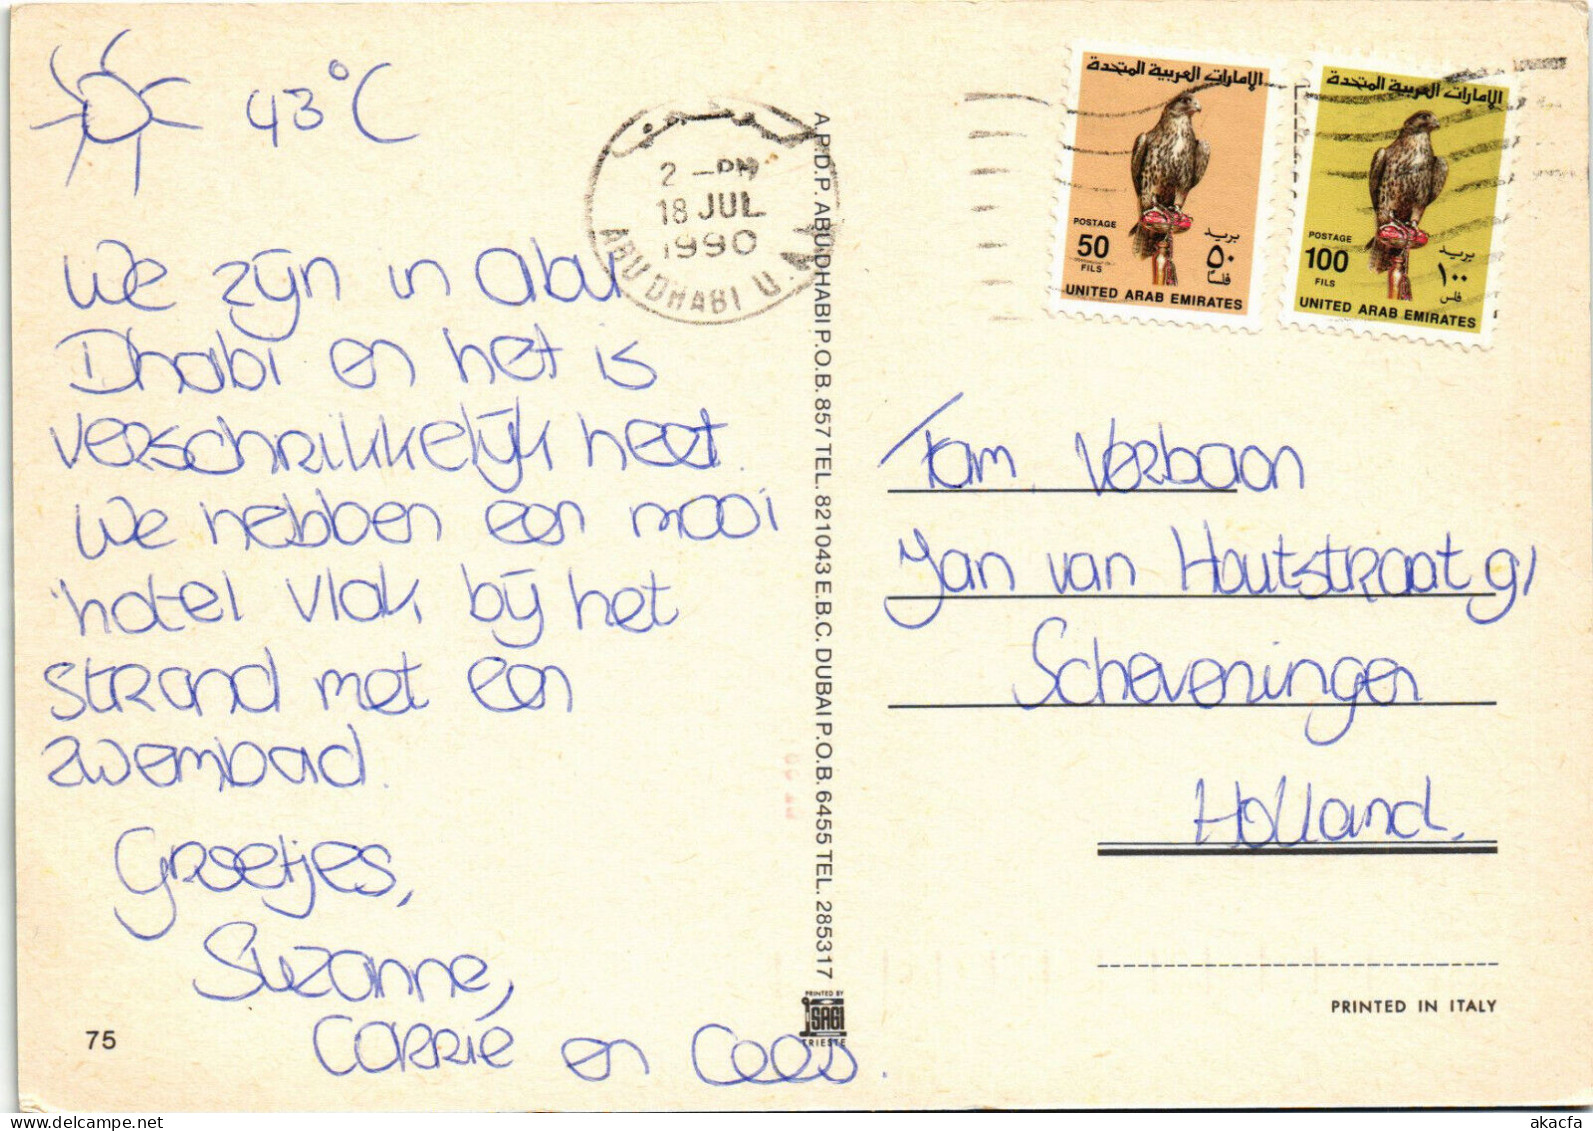 43°C
We zijn in Abu
Dhabi en het is
verschrikkelijk heet.
We hebben een mooi
hotel vlak bij het
strand met een
zwembad.
Groetjes,
Suzanne,
Corrie en Cees.
75
2 - PM
18 JUL
1990
ABU DHABI U.
A.P.D.P. ABUDHABI P.O.B. 857 TEL. 821043 E.B.C. DUBAI P.O.B. 6455 TEL. 285317
PRINTED BY
SAGI
TRIESTE
الإمارات العربية المتحدة
POSTAGE
50
FILS
بريد
٥٠
فلس
UNITED ARAB EMIRATES
الإمارات العربية المتحدة
POSTAGE
100
FILS
بريد
١٠٠
فلس
UNITED ARAB EMIRATES
Fam. Verbaan
Jan van Houtstraat 91
Scheveningen
Holland.
PRINTED IN ITALY
akacfa